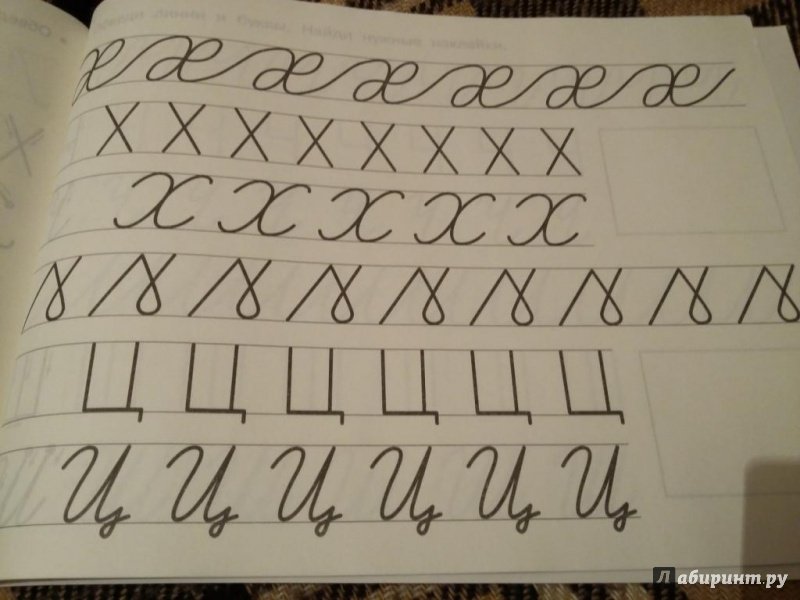 обведи линии и буквы. Найди нужные наклейки.
Х Х Х Х Х Х Х Х
Х Х Х Х Х
Ц Ц Ц Ц Ц Ц
Ц Ц Ц Ц Ц Ц
Лабиринт.ру